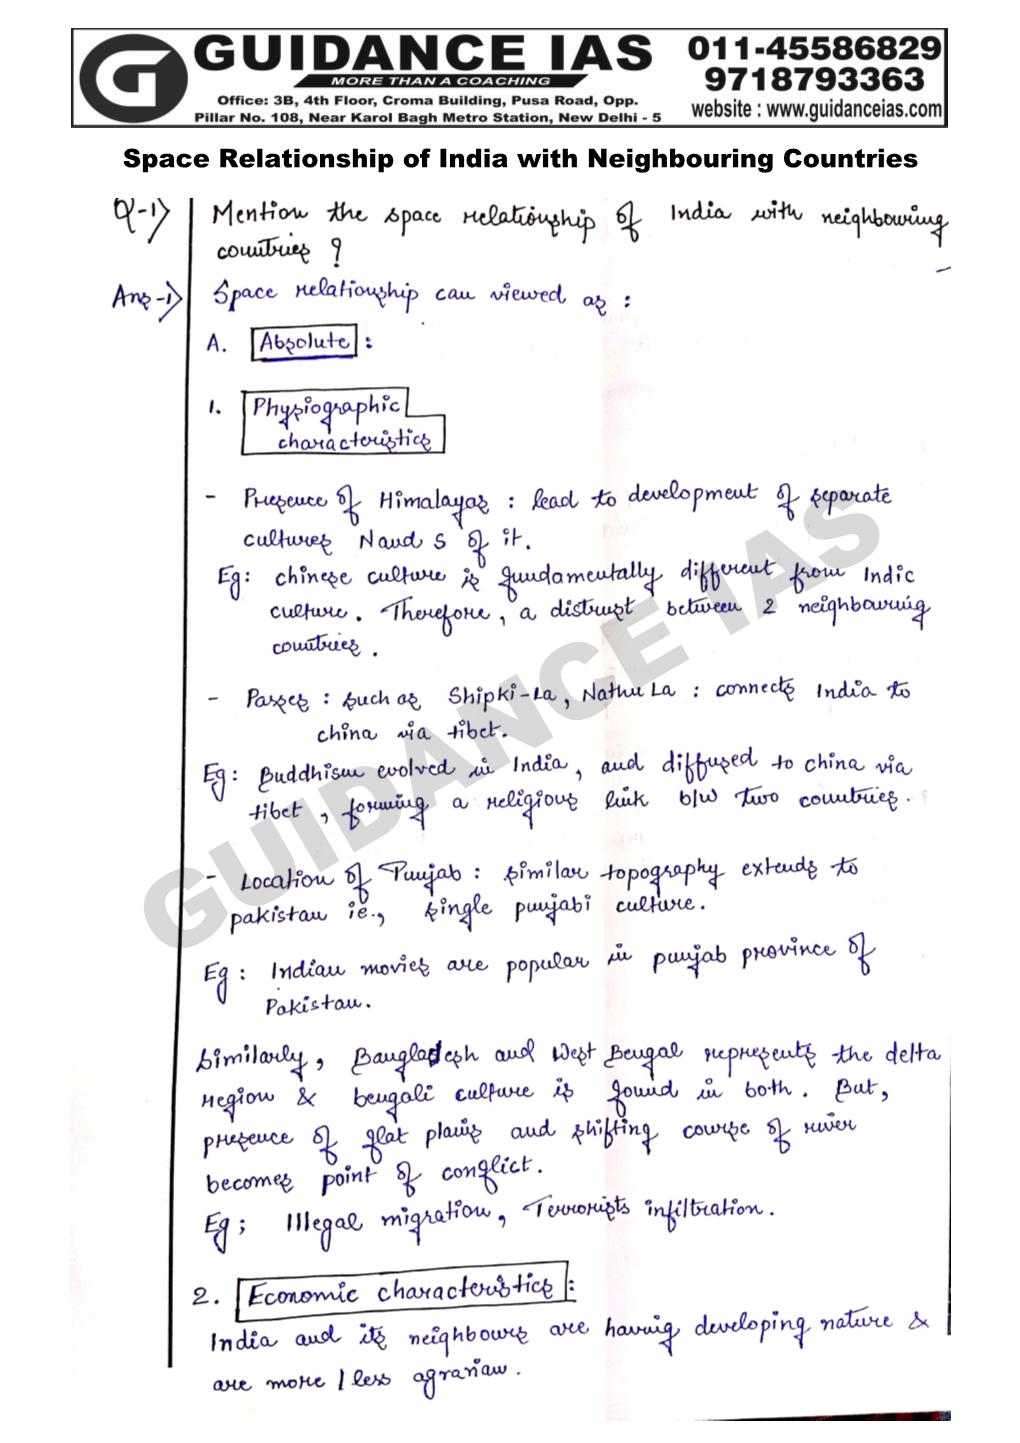 GUIDANCE IAS
MORE THAN A COACHING
Office: 3B, 4th Floor, Croma Building, Pusa Road, Opp.
Pillar No. 108, Near Karol Bagh Metro Station, New Delhi - 5
011-45586829
9718793363
website : www.guidanceias.com
Space Relationship of India with Neighbouring Countries
Q-1) Mention the space relationship of India with neighbouring
countries ?
Ans-1) Space relationship can viewed as :
A. Absolute :
1. Physiographic
characteristics
- Presence of Himalayas : lead to development of separate
cultures N and S of it.
Eg: chinese culture is fundamentally different from Indic
culture. Therefore, a distrust between 2 neighbouring
countries.
- Passes : such as Shipki-La, Nathu La : connects India to
china via tibet.
Eg: Buddhism evolved in India, and diffused to china via
tibet, forming a religious link b/w two countries.
- Location of Punjab : similar topography extends to
pakistan ie., single punjabi culture.
Eg: Indian movies are popular in punjab province of
Pakistan.
Similarly, Bangladesh and West Bengal represents the delta
region & bengali culture is found in both. But,
presence of flat plains and shifting course of river
becomes point of conflict.
Eg; Illegal migration, Terrorists infiltration.
2. Economic characteristics :
India and its neighbours are having developing nature &
are more / less agrarian.
GUIDANCE IAS